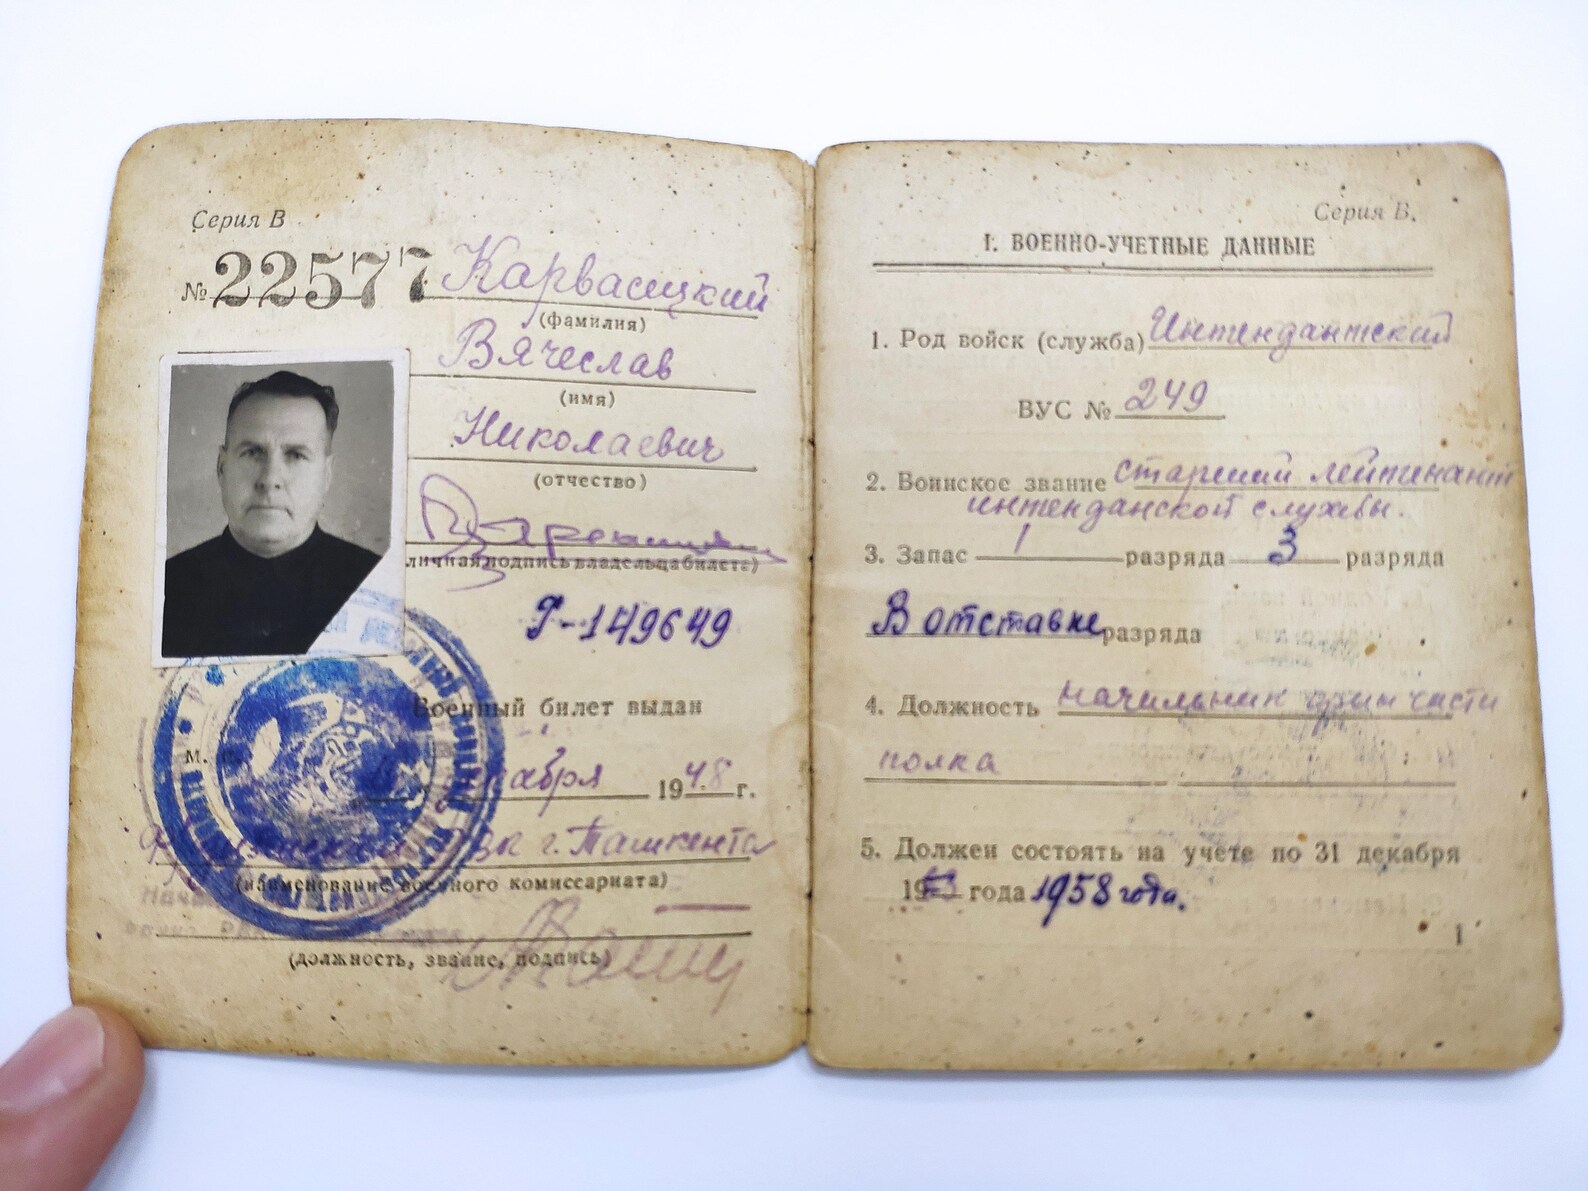 Серия В
№ 225777 Карвасецкий
(фамилия)
Вячеслав
(имя)
Николаевич
(отчество)
(личная подпись владельца билета)
Г-149649
Военный билет выдан
М. П.
1948 г.
г. Ташкента
(наименование военного комиссариата)
(должность, звание, подпись)
Серия В.
I. ВОЕННО-УЧЕТНЫЕ ДАННЫЕ
1. Род войск (служба) Интендантский
ВУС № 249
2. Воинское звание старший лейтинант
интенданской службы.
3. Запас 1 разряда 3 разряда
В отставке разряда
4. Должность начильник фин части
полка
5. Должен состоять на учете по 31 декабря
19 года 1958 года.
1